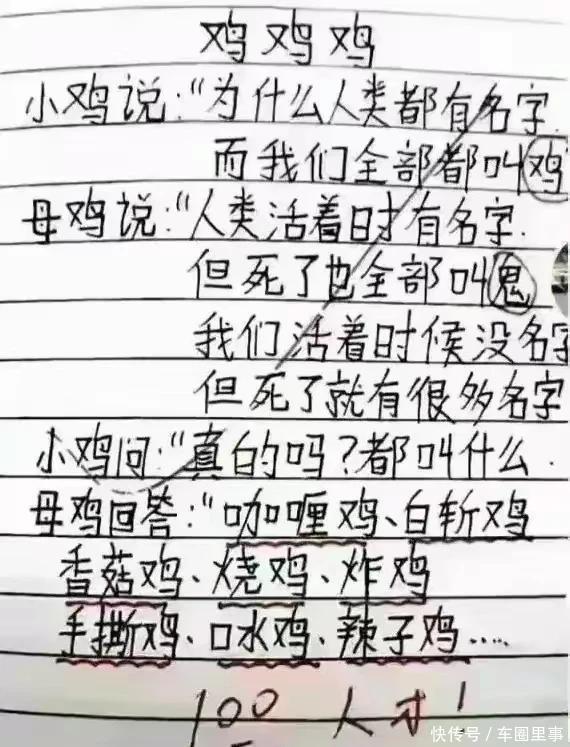 鸡鸡鸡
小鸡说:"为什么人类都有名字
而我们全部都叫鸡
母鸡说:"人类活着时有名字.
但死了也全部叫鬼
我们活着时候没名字
但死了就有很多名字
小鸡问:"真的吗?都叫什么.
母鸡回答:"咖喱鸡、白斩鸡
香菇鸡、烧鸡、炸鸡
手撕鸡、口水鸡、辣子鸡……
100 人才!
快传号/车圈里事